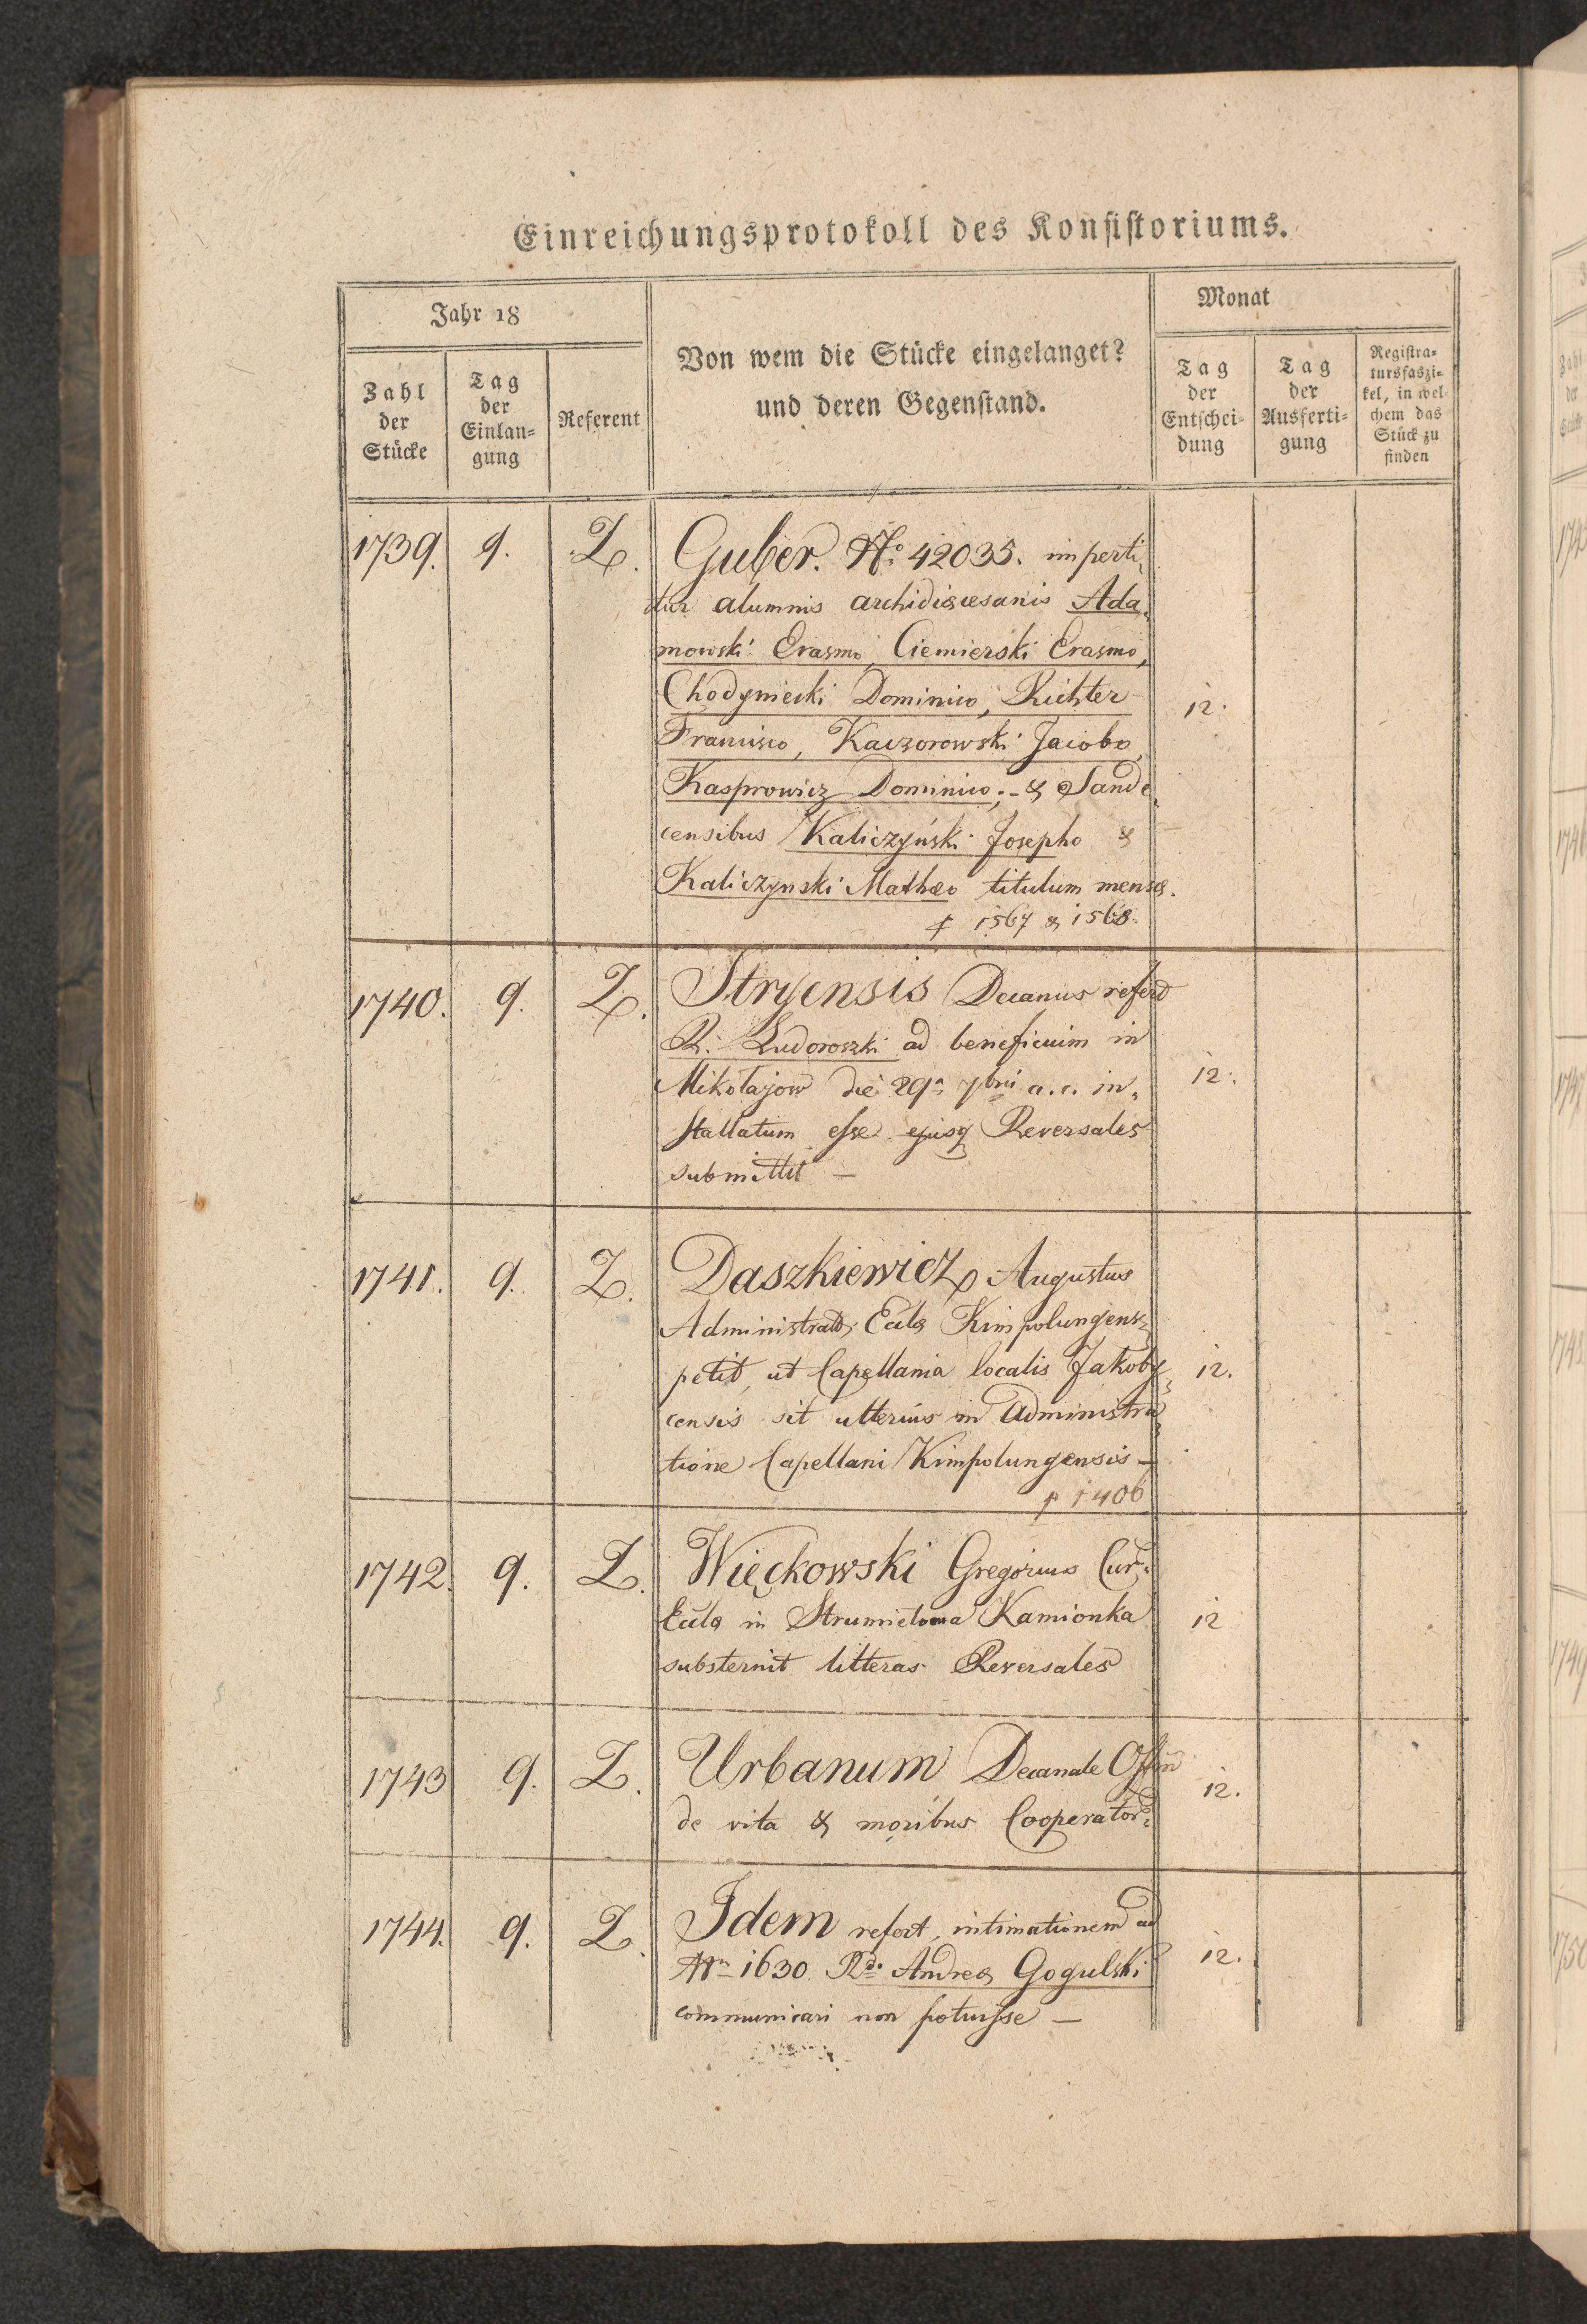 Einreichungsprotokoll des Konsistoriums.
Jahr 18
Monat
Zahl der Stücke
Tag der Einlan= gung
Referent
Von wem die Stücke eingelanget?
und deren Gegenstand.
Tag der Entschei= dung
Tag der Ausferti= gung
Registra= tursfaszi= kel, in wel= chem das Stück zu finden
1739. 9. Z. Guber. No 42035. imperti„
tur alumnis archidioecesanis Ada„
mowski Erasmo, Ciemierski Erasmo,
Chodyniecki Dominico, Richter
12.
Francisco, Kaczorowski Jacobo,
Kasprowicz Dominico; - & Sande„
censibus Kaliczyński Josepho &
Kaliczynski Mathæo titulum mensæ.
1567 & 1568
1740. 9. Z. Stryensis Decanus refert
R. Ludoroszki ad beneficium in
Mikołajow die 29a 7bris a. c. in„
12.
stallatum esse ejusq Reversales
submittit —
1741. 9. Z. Daszkiewicz Augustus
Administrator Eccla Kimpolungens
petit, ut Capellania localis Jakoby„
12.
censis sit ulterius in administra„
tione Capellani Kimpolungensis —
1406
1742. 9. Z. Więckowski Gregorius Cur.
Eccla in Strumiełowa Kamionka
12
substernit litteras Reversales
1743 9. Z. Urbanum Decanale Offm
12.
de vita & moribus Cooperator
1744. 9. Z. Idem refert, intimationem ad
Nrm 1630 Rdo Andreæ Gogulski
12.
communicari non potuisse —